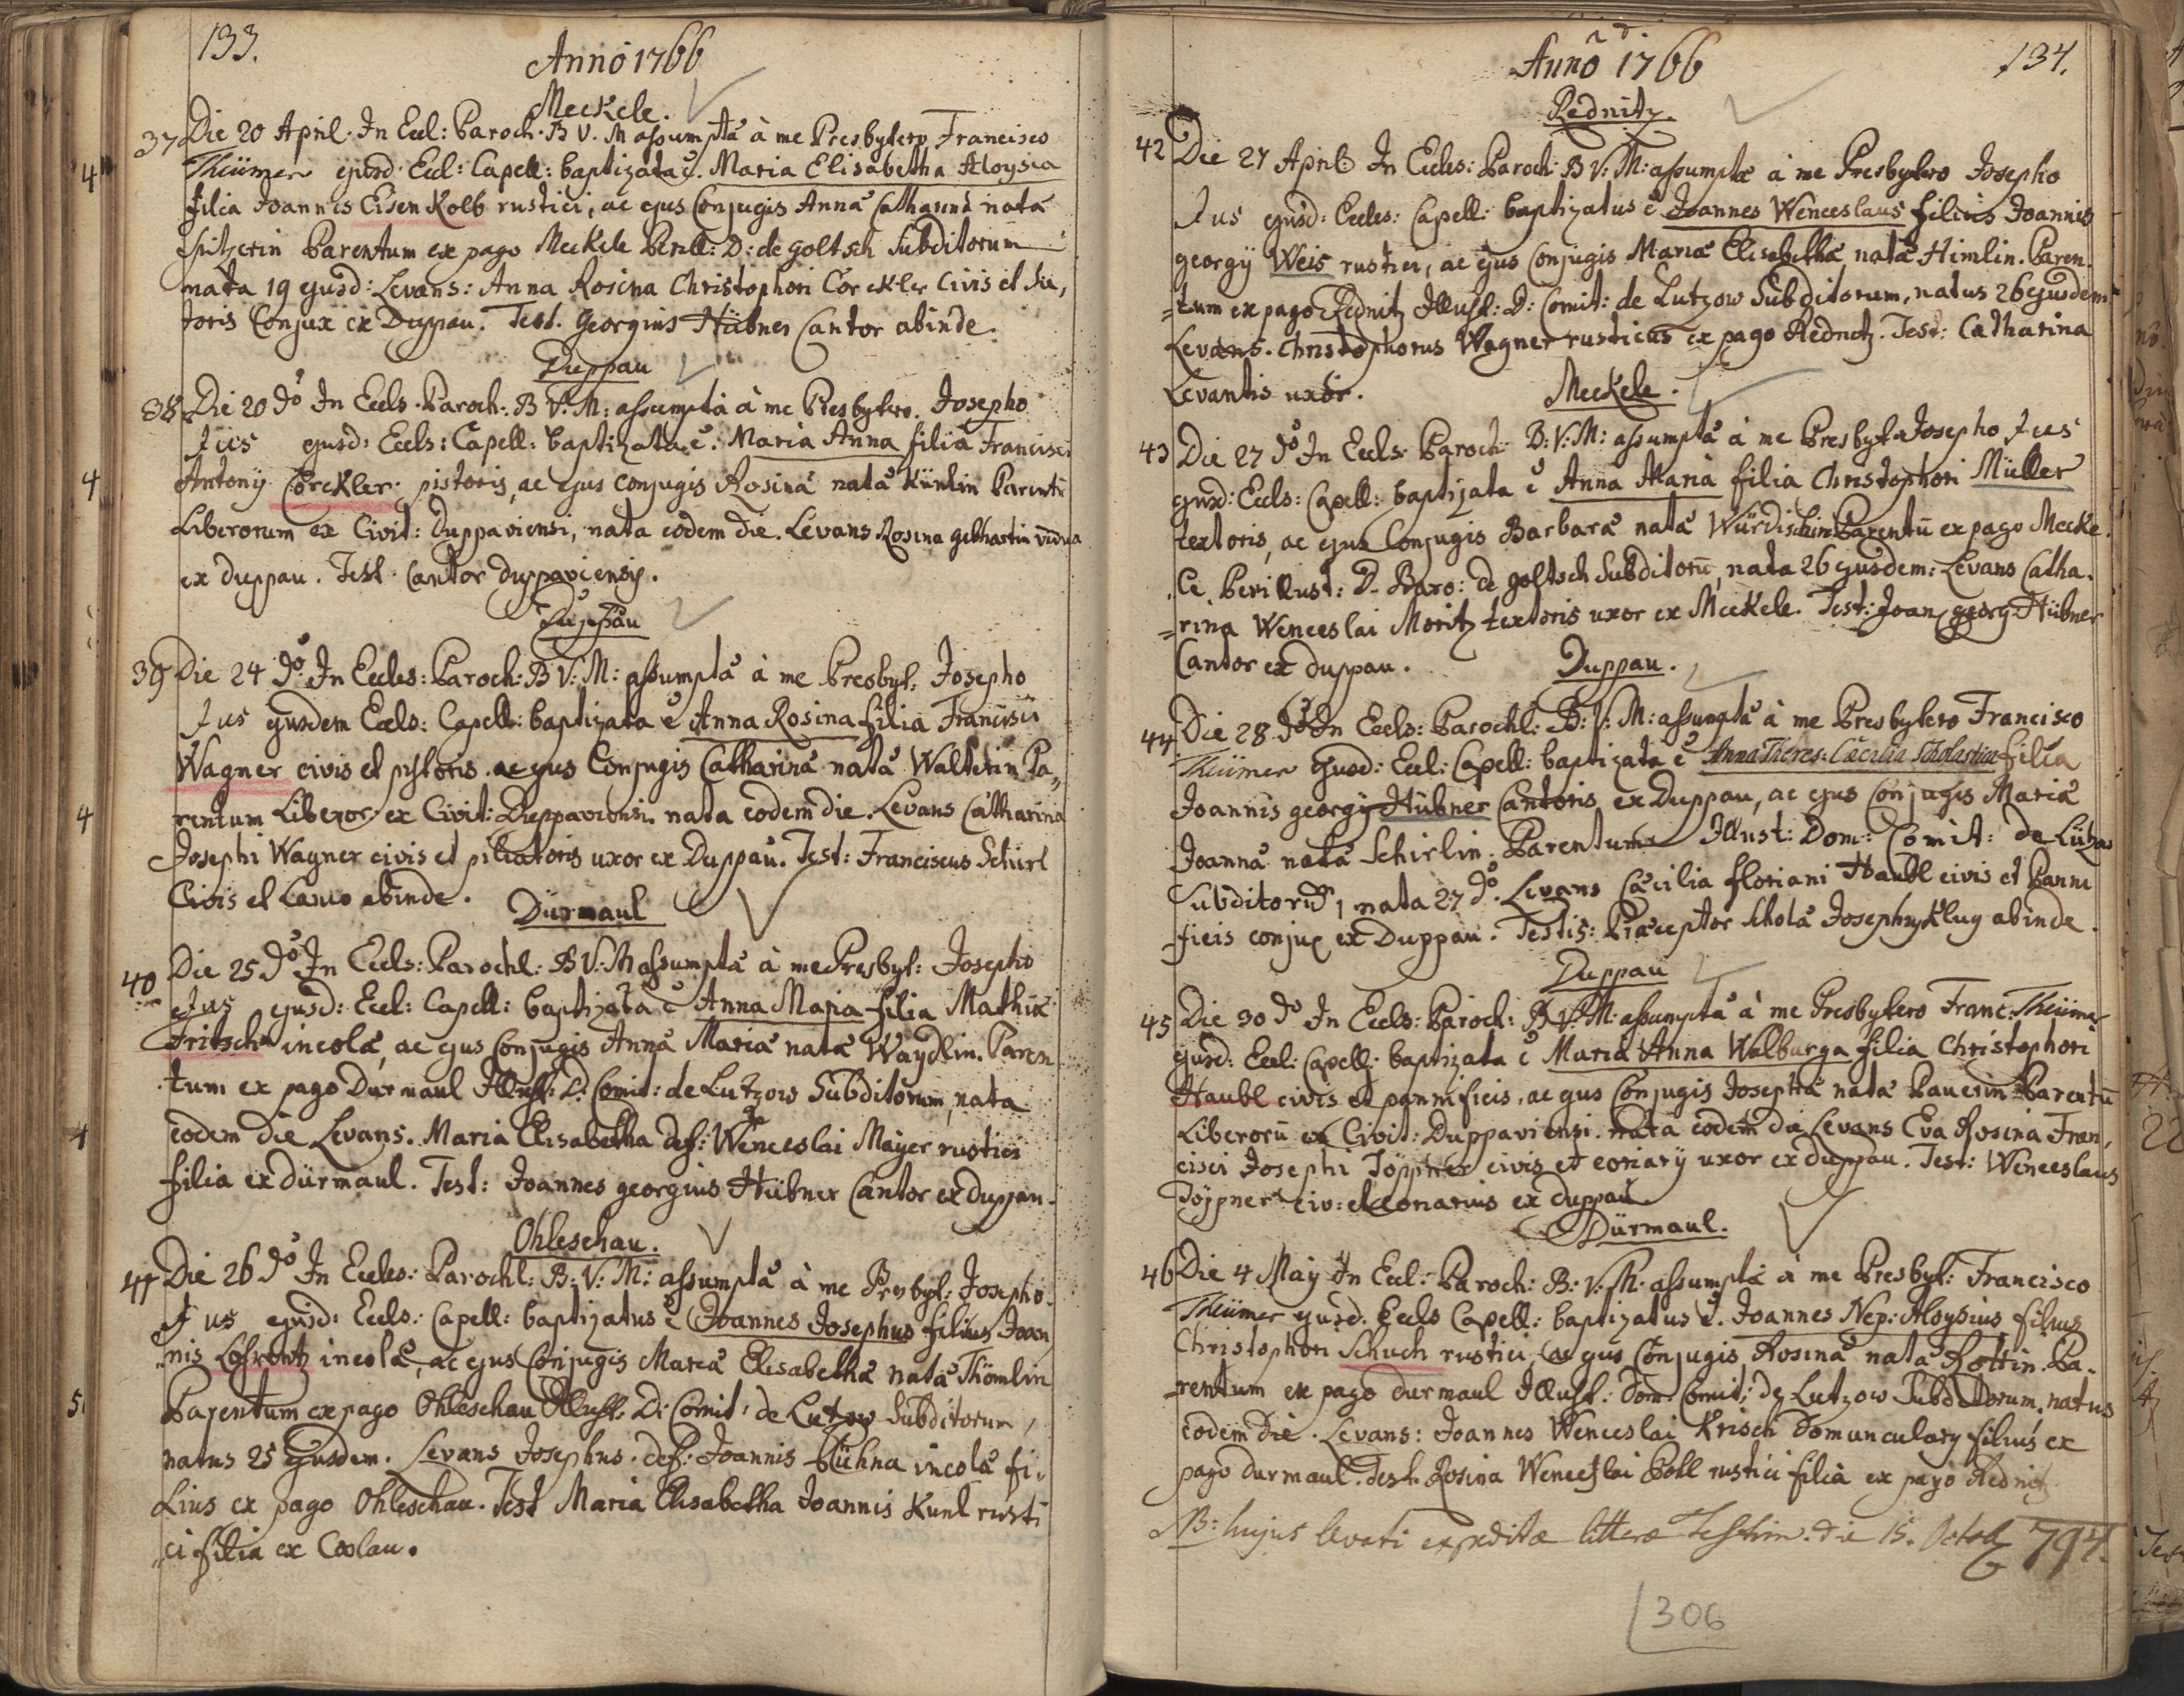 133.
Anno 1766
Meckele.
37 Die 20 April. In Eccl: Paroch. B V. M assumptâ à me Presbytero Francisco
Thümer ejusd. Eccl: Capell: baptizata ĕ. Maria Elisabetha Aloysia
filia Joannis Eisenkolb rustici, ac ejus Conjugis Annâ Catharinâ natâ
Spitzerin Parentum ex pago Meckele Perill: D: de Goltsch Subditorum
nata 19 ejusd: Levans: Anna Rosina Christophori Cörckler Civis et Su,
toris Conjux ex Duppau. Test. Georgius Hübner Cantor abinde.
Duppau
38 Die 20 do In Eccls. Paroch: B V: M: assumptâ à me Presbytero Josepho
Jus ejusd: Eccls: Capell: baptizata ĕ. Maria Anna filia Francisci
Antonÿ Cörckler pistoris, ac ejus conjugis Rosinâ natâ Künlin Parentū
Liberorum ex Civit: Duppaviensi, nata eodem die. Levans Rosina Gebhartin vidua
ex duppau. Test. Cantor duppaviensis.
Duppau
39 Die 24 do In Eccles: Paroch: B V: M: assumptâ à me Presbyt: Josepho
Jus ejusdem Eccls: Capell: baptizata ĕ Anna Rosina filia Francisci
Wagner civis et pistoris ac ejus Conjugis Catharinâ natâ Walterin Pa,,
rentum Liberor: ex Civit: Duppaviensi. nata eodem die. Levans Catharina
Josephi Wagner civis et pileatoris uxor ex Duppau. Test: Franciscus Schirl
Civis et Lanio abinde.
Dürmaul
40 Die 25 do In Eccls: Parochl: B V: M assumptâ à me Presbyt: Josepho
Jus ejusd: Eccl: Capell: baptizata ĕ Anna Maria filia Mathiæ
Fritsch incolâ, ac ejus Conjugis Annâ Mariâ natâ Waydlin. Paren
tum ex pago Dürmaul Illust: D: Comit: de Lutzow Subditorum, nata
eodem die Levans. Maria Elisabetha def: Wenceslai Mayer rustici
filia ex dürmaul. Test: Joannes georgius Hübner Cantor ex duppau.
Ohleschau.
41 Die 26 do In Eccles: Parochl: B: V: M: assumptâ à me Presbyt: Josepho
Jus ejusd: Eccls: Capell: baptizatus ĕ Joannes Josephus filius Joan
nis incolâ, ac ejus Conjugis Mariâ Elisabethâ natâ Thömlin
Parentum ex pago Ohleschau Illust: D: Comit: de Lutzow Subditorum,
natus 25 ejusdem. Levans Josephus. def: Joannis incolâ fi,,
lius ex pago Ohleschau. Test Maria Elisabetha Joannis Kunl rusti
ci filia ex Coslau.
4
4
4
4
5
134.
Anno 1766
Rednitz.
42 Die 27 April In Eccles: Paroch: B V: M: assumptæ à me Presbytero Josepho
Jus ejusd: Eccles: Capell: baptizatus ĕ Joannes Wenceslaus filius Joannis
georgÿ Weis rustici, ac ejus Conjugis Mariâ Elisabethâ natâ Himlin. Paren,
=tum ex pago Rednitz Illust: D: Comit: de Lutzow Subditorum, natus 26 ejusdem
Levans. Christophorus Wagner rusticus ex pago Rednitz. Test: Catharina
Levantis uxor.
Meckele.
43 Die 27 do In Eccls: Paroch: B: V: M: assumptâ à me Presbyt: Josepho Jus
ejusd: Eccls: Capell: baptizata ĕ Anna Maria filia Christophori Müller
textoris, ac ejus Conjugis Barbarâ natâ Parentū ex pago Mecke
le. Perillust: D. Baro: de Goltsch Subditorū, nata 26 ejusdem: Levans Catha,
=rina Wenceslai Moritz textoris uxor ex Meckele. Test: Joan georg: Hübner
Cantor ex duppau.
Duppau.
44 Die 28 do In Eccls: Parochl: B: V: M: assumptâ à me Presbytero Francisco
Thümer Ejusd: Eccl: Capell: baptizata ĕ Anna Theres: Cæcilia Scholastica filia
Joannis georgÿ Hübner Cantoris ex Duppau, ac ejus Conjugis Mariâ
Joannâ natâ Schirlin. Parentum Illust: Dom: Comit: de Lützow
Subditorū, nata 27 do. Levans Cæcilia floriani Haubl civis et Panni
ficis conjux ex Duppau. Testis: Præceptor Scholâ Josephus Klug abinde.
Duppau
45 Die 30 do In Eccls: Paroch: B V: M: assumptâ à me Presbytero Franc: Thümer
ejusd: Eccl: Capell: baptizata ĕ Maria Anna Walburga filia Christophori
Haubl civis et pannificis, ac ejus Conjugis Josephâ natâ Bauerin Parentū
Liberorū ex Civit: Duppaviensi. nata eodem die Levans Eva Rosina Fran,
cisci Josephi Töppner civis et coriarÿ uxor ex duppau. Test: Wenceslaus
Töppner civ: et coriarius ex duppau.
Dürmaul.
46 Die 4 May In Eccl: Paroch: B: V: M: assumptæ à me Presbyt: Francisco
Thümer ejusd. Eccls Capell: baptizatus ĕ. Joannes Nep: Aloysius filius
Christophori Schuch rustici, ac ejus Conjugis Rosinâ natâ Rottin. Pa,
=rentum ex pago durmaul Illust: Dom: Comit: de Lutzow Subditorum. natus
eodem die. Levans: Joannes Wenceslai Krisch Domuncularÿ filius ex
pago durmaul. Test. Rosina Wenceslai Poll rustici filia ex pago Rednitz.
NB: hujus levati expeditæ litteræ Testim. die 15. Octob 794.
306